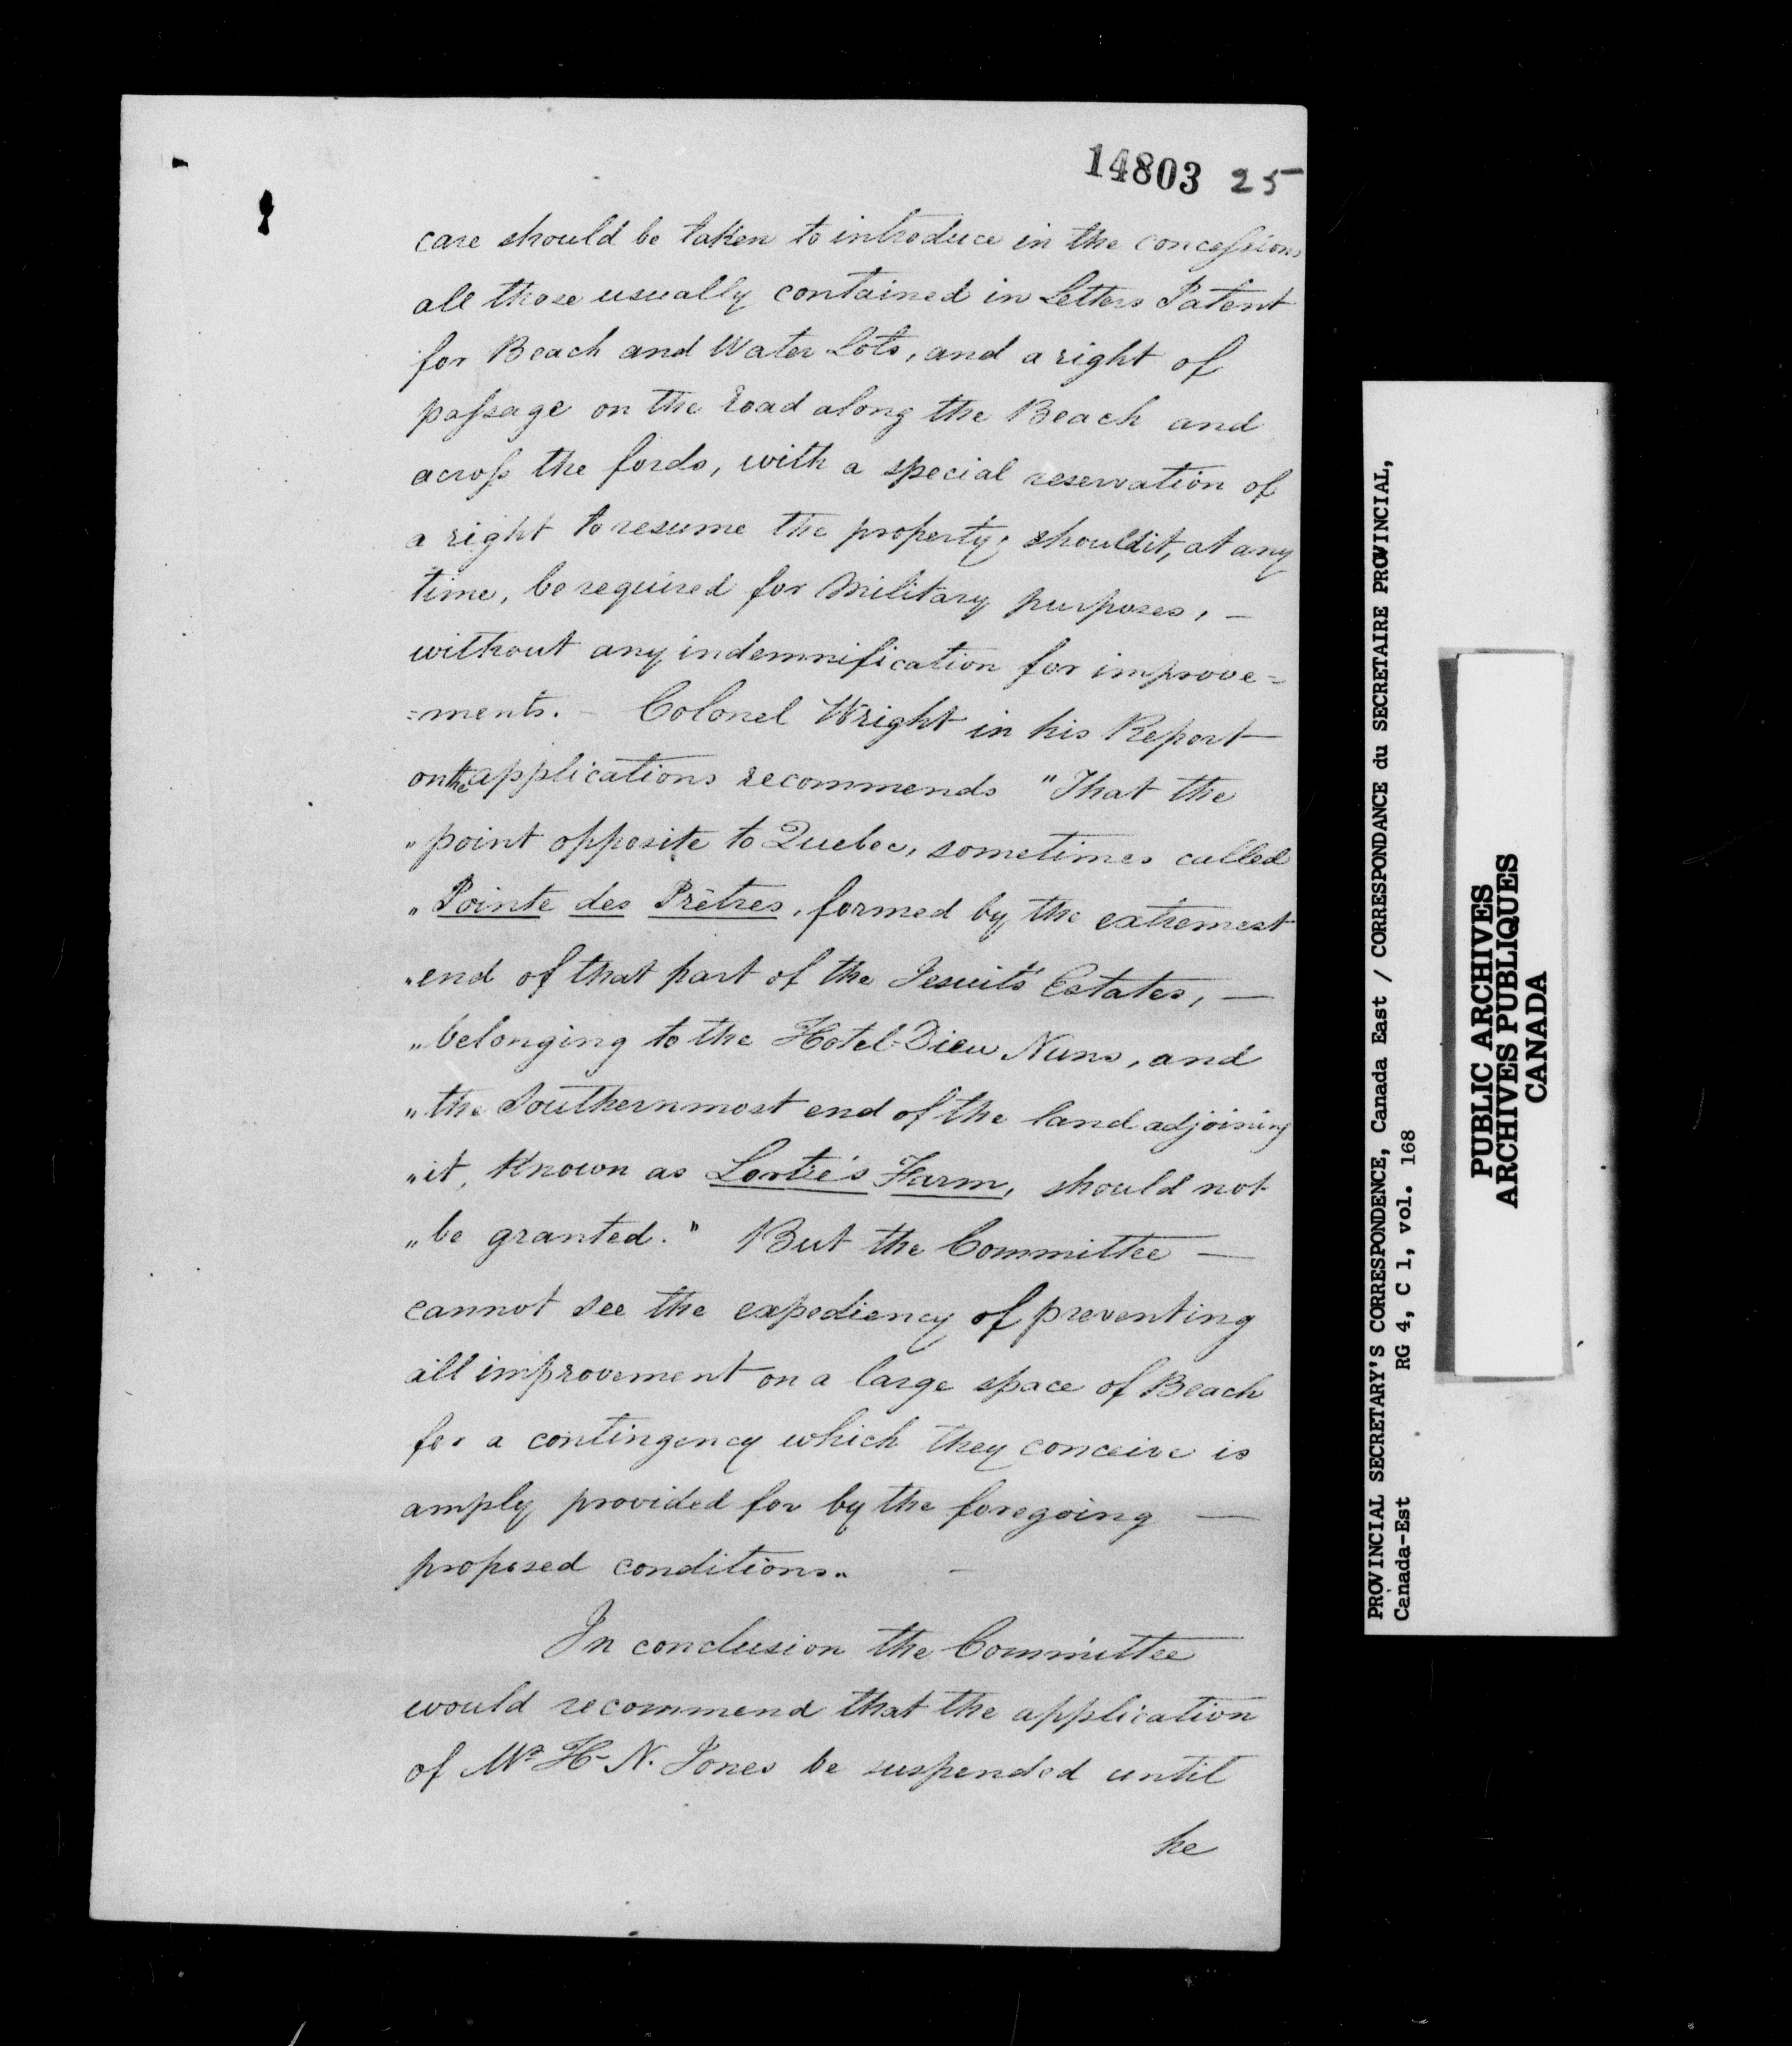 14803 25
care should be taken to introduce in the concessions
all those usually contained in Letters Patent
for Beach and Water Lots, and a right of
passage on the road along the Beach and
across the fords, with a special reservation of
a right to resume the property, should it, at any
time, be required for Military purposes, —
without any indemnification for improve=
=ments. — Colonel Wright in his Report
on the applications recommends "That the
„ point opposite to Quebec, sometimes called
„ Pointe des Prêtres, formed by the extremest
„ end of that part of the Jesuits' Estates, —
„ belonging to the Hotel-Dieu Nuns, and
„ the Southernmost end of the land adjoining
„ it, known as Lortie's Farm, should not
„ be granted." But the Committee —
cannot see the expediency of preventing
all improvement on a large space of Beach
for a contingency which they conceive is
amply provided for by the foregoing —
proposed conditions. —
In conclusion the Committee
would recommend that the application
of Mr H. N. Jones be suspended until
he
PROVINCIAL SECRETARY'S CORRESPONDENCE, Canada East / CORRESPONDANCE du SECRETAIRE PROVINCIAL,
Canada-Est RG 4, C 1, vol. 168
PUBLIC ARCHIVES
ARCHIVES PUBLIQUES
CANADA